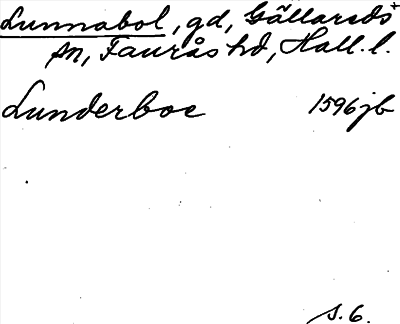 Lunnabol, gd, Gällareds+
sn, Faurås hd, Hall. l.
Lunderboe 1596 jb
s. 6.